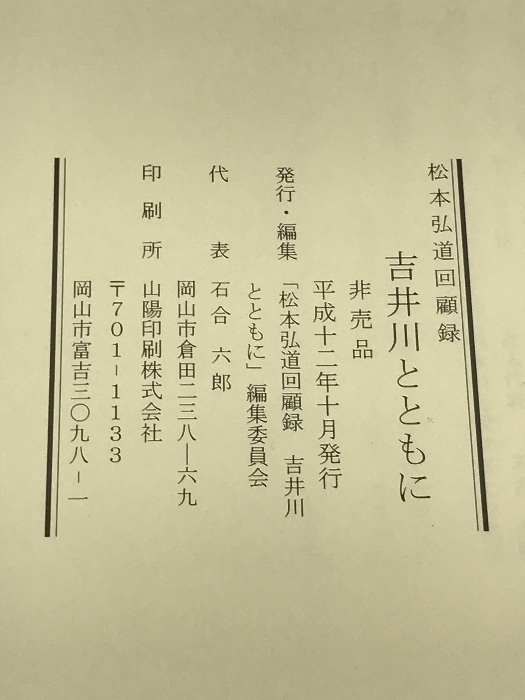 松本弘道回顧録
吉井川とともに
非売品
平成十二年十月発行
発行・編集 「松本弘道回顧録 吉井川
とともに」編集委員会
代表 石合六郎
岡山市倉田二三八―六九
印刷所 山陽印刷株式会社
〒701-1133
岡山市富吉三〇九八-一